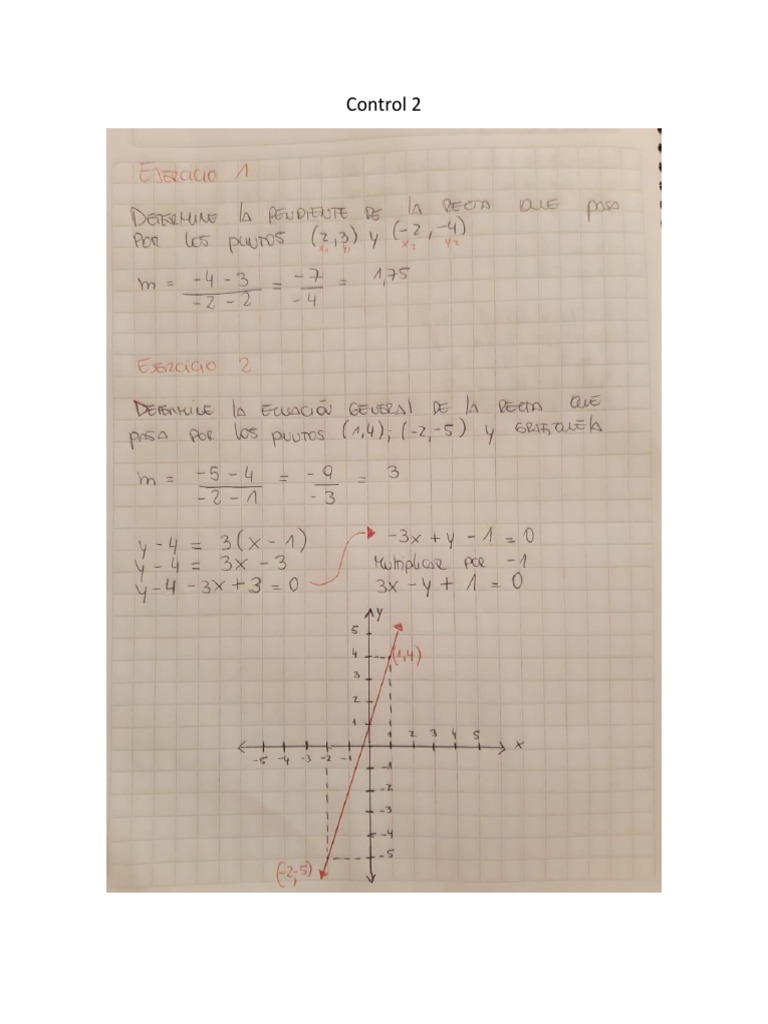 Control 2
EJERCICIO 1
DETERMINE LA PENDIENTE DE LA RECTA QUE PASA
POR LOS PUNTOS (2,3) Y (-2,-4)
x₁ y₁ x₂ y₂
m = (-4 - 3)/(-2 - 2) = -7/-4 = 1,75
EJERCICIO 2
DETERMINE LA ECUACIÓN GENERAL DE LA RECTA QUE
PASA POR LOS PUNTOS (1,4); (-2,-5) Y GRAFIQUELA
m = (-5 - 4)/(-2 - 1) = -9/-3 = 3
y - 4 = 3(x - 1)
y - 4 = 3x - 3
y - 4 - 3x + 3 = 0
-3x + y - 1 = 0
Multiplicar por -1
3x - y + 1 = 0
y
5
4
(1,4)
3
2
1
1 2 3 4 5
x
-5 -4 -3 -2 -1
-1
-2
-3
-4
-5
(-2,-5)